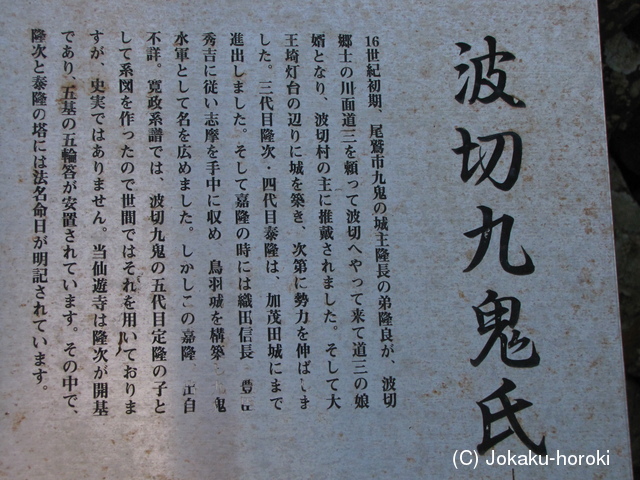 波切九鬼氏
16世紀初期、尾鷲市九鬼の城主隆長の弟隆良が、波切
郷士の川面道三を頼って波切へやって来て道三の娘
婿となり、波切村の主に推戴されました。そして大
王埼灯台の辺りに城を築き、次第に勢力を伸ばしま
した。三代目隆次・四代目泰隆は、加茂田城にまで
進出しました。そして嘉隆の時には織田信長 豊臣
秀吉に従い志摩を手中に収め 鳥羽城を構築 鬼
水軍として名を広めました。しかしこの嘉隆 出自
不詳。寛政系譜では、波切九鬼の五代目定隆の子と
して系図を作ったので世間ではそれを用いておりま
すが、史実ではありません。当仙遊寺は隆次が開基
であり、五基の五輪答が安置されています。その中で、
隆次と泰隆の塔には法名命日が明記されています。
(C) Jokaku-horoki